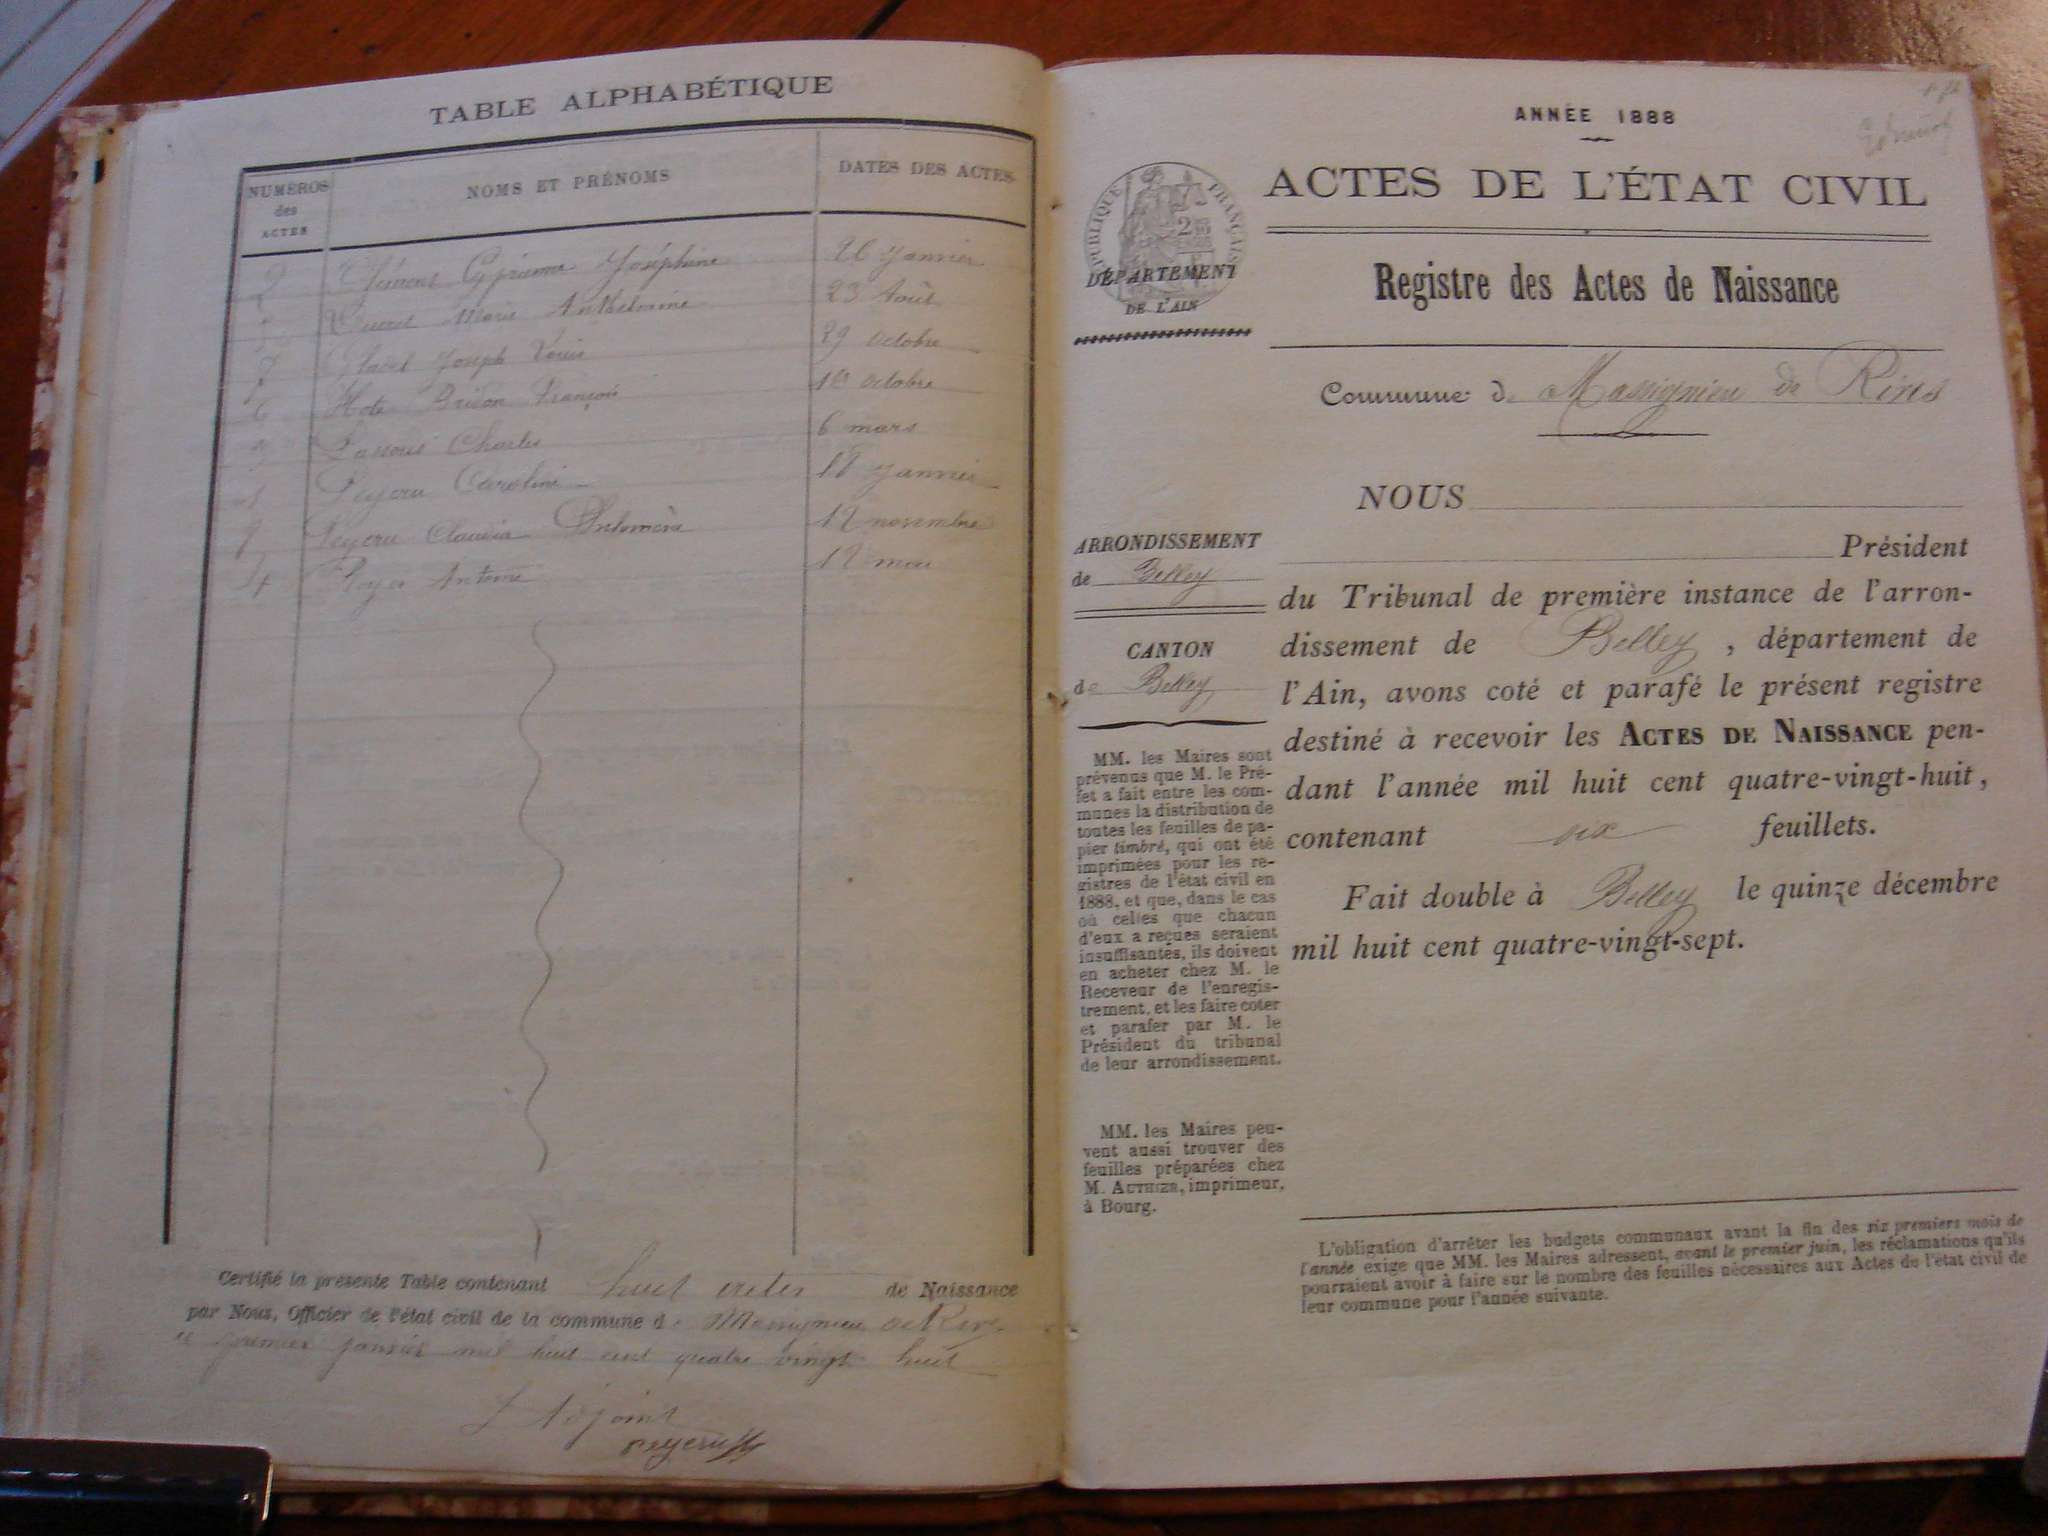 TABLE ALPHABÉTIQUE
NUMÉROS
des
ACTES
NOMS ET PRÉNOMS
DATES DES ACTES
2 Clément Joséphine 26 Janvier
Marie 23 Août
7 Joseph Louis 29 octobre
6 François 1er octobre
3 Charles 6 mars
1 Peyeru 11 Janvier
Peyeru Claudia 12 novembre
4 Antoine 12 mai
Certifié la présente Table contenant huit actes de Naissance
par Nous, Officier de l'état civil de la commune de Massignieu de Rives
le premier janvier mil huit cent quatre vingt huit
L'Adjoint
Peyeru
ANNÉE 1888
ACTES DE L'ÉTAT CIVIL
RÉPUBLIQUE FRANÇAISE
DÉPARTEMENT
DE L'AIN
Registre des Actes de Naissance
Commune de Massignieu de Rives
NOUS
Président
du Tribunal de première instance de l'arron-
dissement de Belley, département de
l'Ain, avons coté et parafé le présent registre
destiné à recevoir les ACTES DE NAISSANCE pen-
dant l'année mil huit cent quatre-vingt-huit,
contenant six feuillets.
Fait double à Belley le quinze décembre
mil huit cent quatre-vingt-sept.
ARRONDISSEMENT
de Belley
CANTON
de Belley
MM. les Maires sont
prévenus que M. le Pré-
fet a fait entre les com-
munes la distribution de
toutes les feuilles de pa-
pier timbré, qui ont été
imprimées pour les re-
gistres de l'état civil en
1888, et que, dans le cas
où celles que chacun
d'eux a reçues seraient
insuffisantes, ils doivent
en acheter chez M. le
Receveur de l'enregis-
trement, et les faire coter
et parafer par M. le
Président du tribunal
de leur arrondissement.
MM. les Maires peu-
vent aussi trouver des
feuilles préparées chez
M. AUTHIER, imprimeur,
à Bourg.
L'obligation d'arrêter les budgets communaux avant la fin des six premiers mois de
l'année exige que MM. les Maires adressent, avant le premier juin, les réclamations qu'ils
pourraient avoir à faire sur le nombre des feuilles nécessaires aux Actes de l'état civil de
leur commune pour l'année suivante.